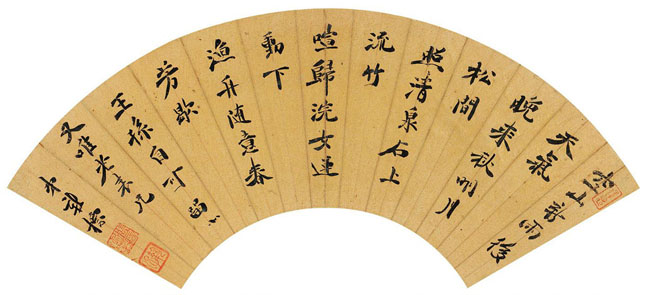 空山新雨後
天氣
晚來秋明月
松間
照清泉石上
流竹
喧歸浣女蓮
動下
漁舟隨意春
芳歇
王孫自可留
又唯老表兄
弟